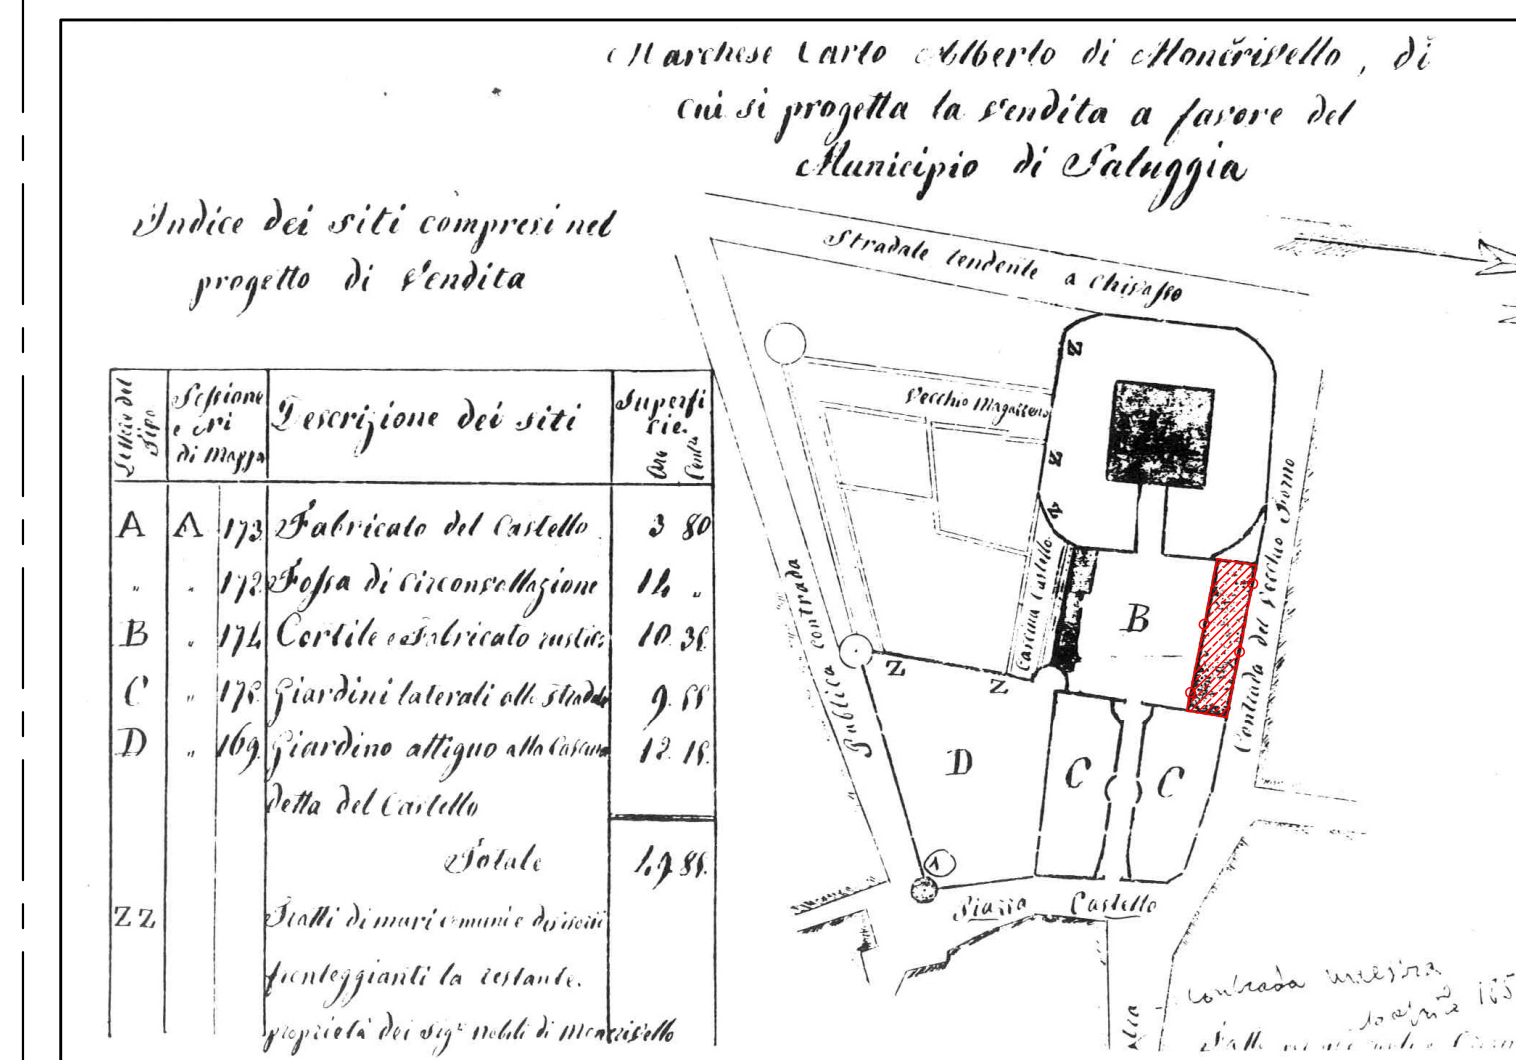 Marchese Carlo Alberto di Moncrivello, di
cui si progetta la vendita a favore del
Municipio di Saluggia
Indice dei siti compresi nel
progetto di Vendita
Lettere del Tipo
Sessione e Nri di Mappa
Descrizione dei siti
Superficie.
Are Cent.
A A 173 Fabricato del Castello 3 80
" " 172 Fossa di circonvallazione 14 "
B " 174 Cortile e Fabricato rustico 10 35
C " 175 Giardini laterali alle stradale 9. 55
D " 169. Giardino attiguo alla Cascina 12. 15.
detta del Castello
Totale 49 85.
ZZ Tratti di muri comuni e divisori
fronteggianti la restante.
proprietà dei Sigri nobili di Moncrivello
Stradale tendente a Chivasso
Vecchio Magazzeno
Cascina Castello
Publica contrada
Contrada del Vecchio Forno
Z
Z
Z
Z
Z
B
D
C
C
1
Piazza Castello
contrada maestra
185